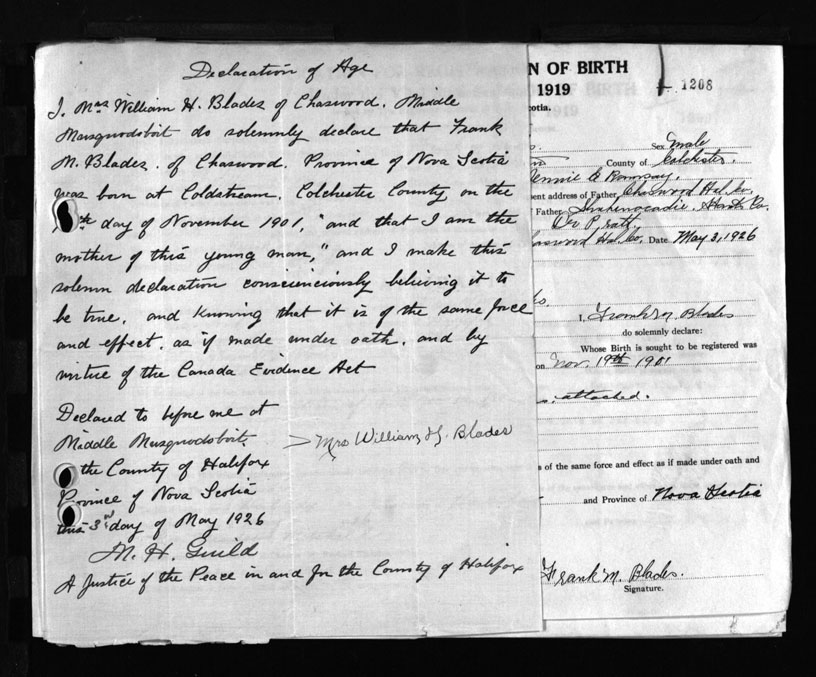 Declaration of Age
I. Mrs William H. Blades of Chaswood. Middle
Musquodoboit do solemnly declare that Frank
M. Blades. of Chaswood. Province of Nova Scotia
was born at Coldstream. Colchester County on the
th day of November 1901, "and that I am the
mother of this young man," and I make this
solemn declaration consciensciously believing it to
be true, and knowing that it is of the same force
and effect. as if made under oath, and by
virtue of the Canada Evidence Act
Declared to before me at
Middle Musquodoboit.
the County of Halifax
Province of Nova Scotia
this 3rd day of May 1926
Mrs William H. Blades
M. H. Guild
A Justice of the Peace in and for the County of Halifax
N OF BIRTH
1919
1208
cotia.
Sex male
County of Colchester.
Jennie A Ramsay.
ent address of Father Chaswood Hal. Co.
Father Shubenacadie. Hants Co.
Dr
Chaswood Hal. Co. Date May 3, 1926
I, Frank M. Blades
do solemnly declare:
Whose Birth is sought to be registered was
on Nov. 19th 1901
attached.
s of the same force and effect as if made under oath and
and Province of Nova Scotia
Frank M. Blades.
Signature.